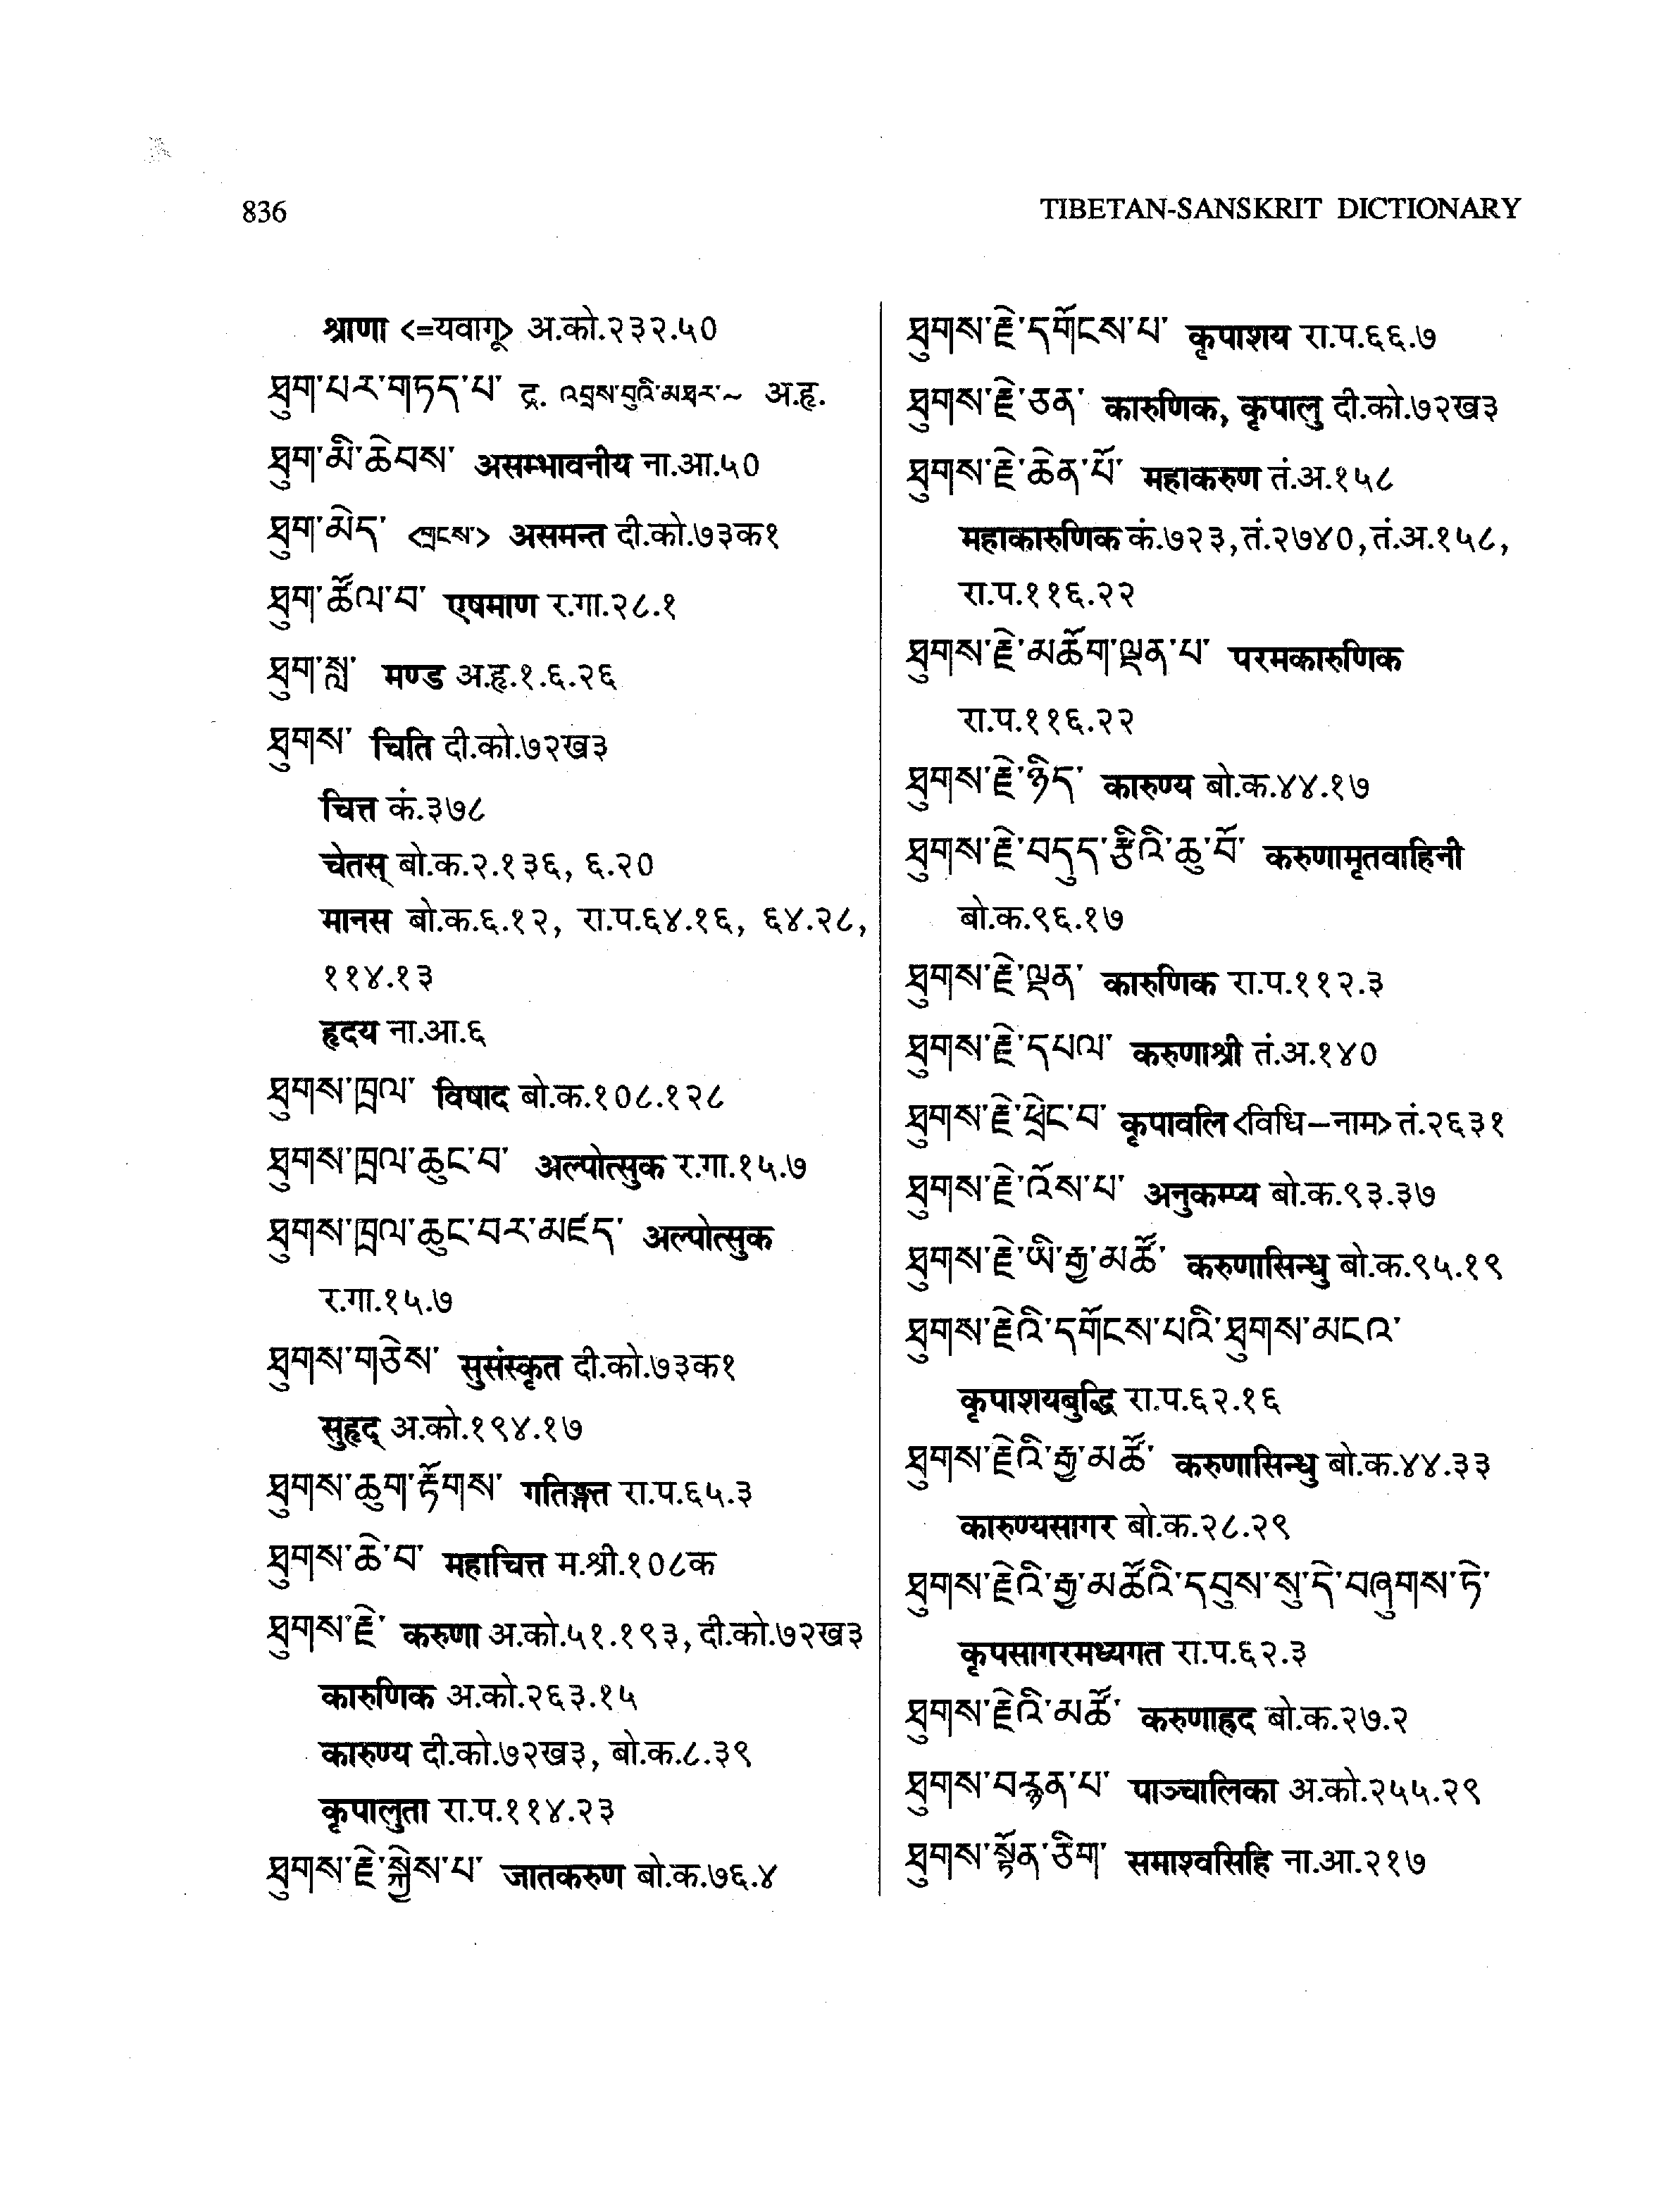 836
TIBETAN-SANSKRIT DICTIONARY
श्राणा <=यवागू> अ.को.२३२.५०
ཐུག་པར་གཏད་པ་ द्र. འབྲས་བུའི་མཐར་~ अ.हृ.
ཐུག་མི་ཆེབས་ असम्भावनीय ना.आ.५०
ཐུག་མེད་ <ཁྲངས་> असमन्त दी.को.७३क१
ཐུག་ཚོལ་བ་ एषमाण र.गा.२८.१
ཐུག་སླ་ मण्ड अ.हृ.१.६.२६
ཐུགས་ चिति दी.को.७२ख३
चित्त कं.३७८
चेतस् बो.क.२.१३६, ६.२०
मानस बो.क.६.१२, रा.प.६४.१६, ६४.२८,
११४.१३
हृदय ना.आ.६
ཐུགས་ཁྲལ་ विषाद बो.क.१०८.१२८
ཐུགས་ཁྲལ་ཆུང་བ་ अल्पोत्सुक र.गा.१५.७
ཐུགས་ཁྲལ་ཆུང་བར་མཛད་ अल्पोत्सुक
र.गा.१५.७
ཐུགས་གཅེས་ सुसंस्कृत दी.को.७३क१
सुहृद् अ.को.१९४.१७
ཐུགས་ཆུག་རྟོགས་ गतिङ्गत्त रा.प.६५.३
ཐུགས་ཆེ་བ་ महाचित्त म.श्री.१०८क
ཐུགས་རྗེ་ करुणा अ.को.५१.१९३, दी.को.७२ख३
कारुणिक अ.को.२६३.१५
कारुण्य दी.को.७२ख३, बो.क.८.३९
कृपालुता रा.प.११४.२३
ཐུགས་རྗེ་སྐྱེས་པ་ जातकरुण बो.क.७६.४
ཐུགས་རྗེ་དགོངས་པ་ कृपाशय रा.प.६६.७
ཐུགས་རྗེ་ཅན་ कारुणिक, कृपालु दी.को.७२ख३
ཐུགས་རྗེ་ཆེན་པོ་ महाकरुण तं.अ.१५८
महाकारुणिक कं.७२३, तं.२७४०, तं.अ.१५८,
रा.प.११६.२२
ཐུགས་རྗེ་མཆོག་ལྡན་པ་ परमकारुणिक
रा.प.११६.२२
ཐུགས་རྗེ་ཉིད་ कारुण्य बो.क.४४.१७
ཐུགས་རྗེ་བདུད་རྩིའི་ཆུ་བོ་ करुणामृतवाहिनी
बो.क.९६.१७
ཐུགས་རྗེ་ལྡན་ कारुणिक रा.प.११२.३
ཐུགས་རྗེ་དཔལ་ करुणाश्री तं.अ.१४०
ཐུགས་རྗེ་ཕྲེང་བ་ कृपावलि <विधि–नाम> तं.२६३१
ཐུགས་རྗེ་འོས་པ་ अनुकम्प्य बो.क.९३.३७
ཐུགས་རྗེ་ཡི་རྒྱ་མཚོ་ करुणासिन्धु बो.क.९५.१९
ཐུགས་རྗེའི་དགོངས་པའི་ཐུགས་མངའ་
कृपाशयबुद्धि रा.प.६२.१६
ཐུགས་རྗེའི་རྒྱ་མཚོ་ करुणासिन्धु बो.क.४४.३३
कारुण्यसागर बो.क.२८.२९
ཐུགས་རྗེའི་རྒྱ་མཚོའི་དབུས་སུ་དེ་བཞུགས་ཏེ་
कृपसागरमध्यगत रा.प.६२.३
ཐུགས་རྗེའི་མཚོ་ करुणाह्रद बो.क.२७.२
ཐུགས་བརྙན་པ་ पाञ्चालिका अ.को.२५५.२९
ཐུགས་སྟོན་ཅིག་ समाश्वसिहि ना.आ.२१७